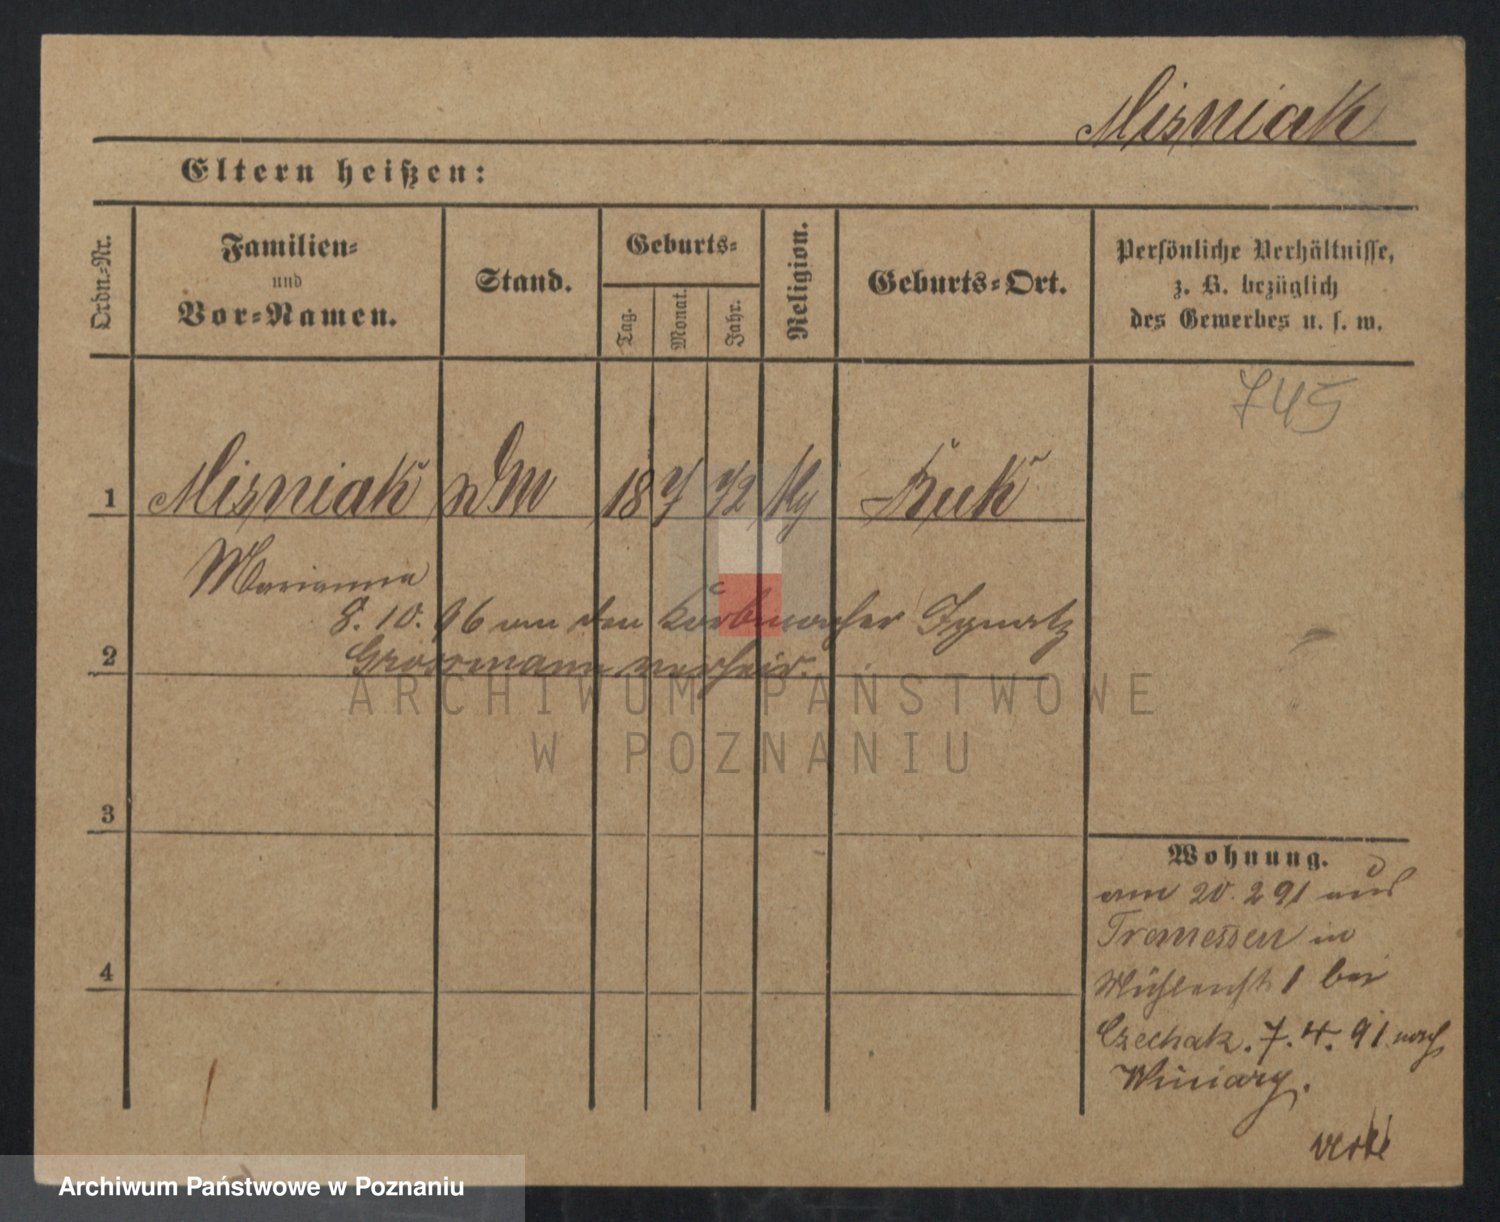 Misniak
Eltern heißen:
Ordn.-Nr.
Familien-
und
Vor-Namen.
Stand.
Geburts-
Tag.
Monat.
Jahr.
Religion.
Geburts-Ort.
Persönliche Verhältnisse,
z. B. bezüglich
des Gewerbes u. s. w.
745
1 Misniak 18 7 72 Buk
Marianna
8. 10. 96 an den Korbmacher Ignatz
2 Grossmann verheir.
ARCHIWUM PAŃSTWOWE
W POZNANIU
3
Wohnung.
am 20. 2 91 aus
Tremessen in
4
Mühlenst 1 bei
Czechak. 7. 4. 91 nach
Winiary.
Archiwum Państwowe w Poznaniu